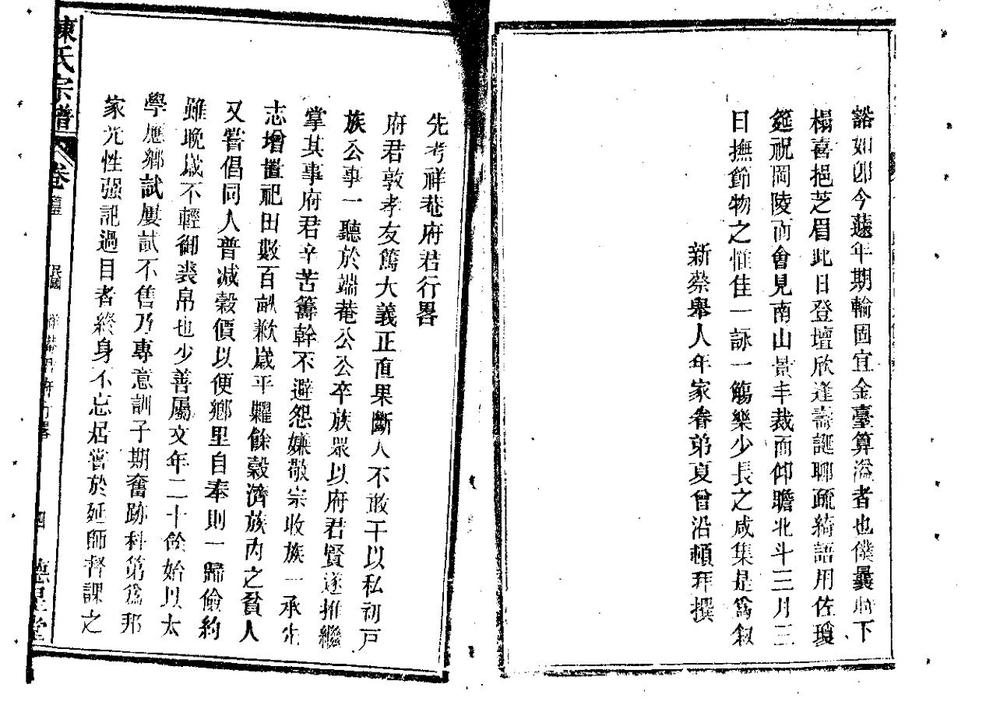 豁如郎今遠年期輸固宜金臺算溢者也僕曩時下
榻喜挹芝眉此日登壇欣逢壽誕聊疏綺語用佐瓊
筵祝岡陵而會見南山景丰裁而仰瞻北斗三月三
日撫節物之惟佳一詠一觴樂少長之咸集是爲叙
新蔡舉人年家眷弟夏曾沿頓拜撰
先考祥菴府君行畧
府君敦孝友篤大義正直果斷人不敢干以私初戸
族公事一聽於端菴公公卒族眾以府君賢遂推繼
掌其事府君辛苦籌幹不避怨嫌敬宗收族一承先
志增置祀田數百畝歉歲平糶餘穀濟族內之貧人
又嘗倡同人普減穀價以便鄉里自奉則一歸儉約
雖晚歲不輕御裘帛也少善屬文年二十餘始以太
學應鄉試屢試不售乃專意訓子期奮跡科第爲邦
家光性强記過目者終身不忘居嘗於延師督課之
陳氏宗譜 卷 民國 四